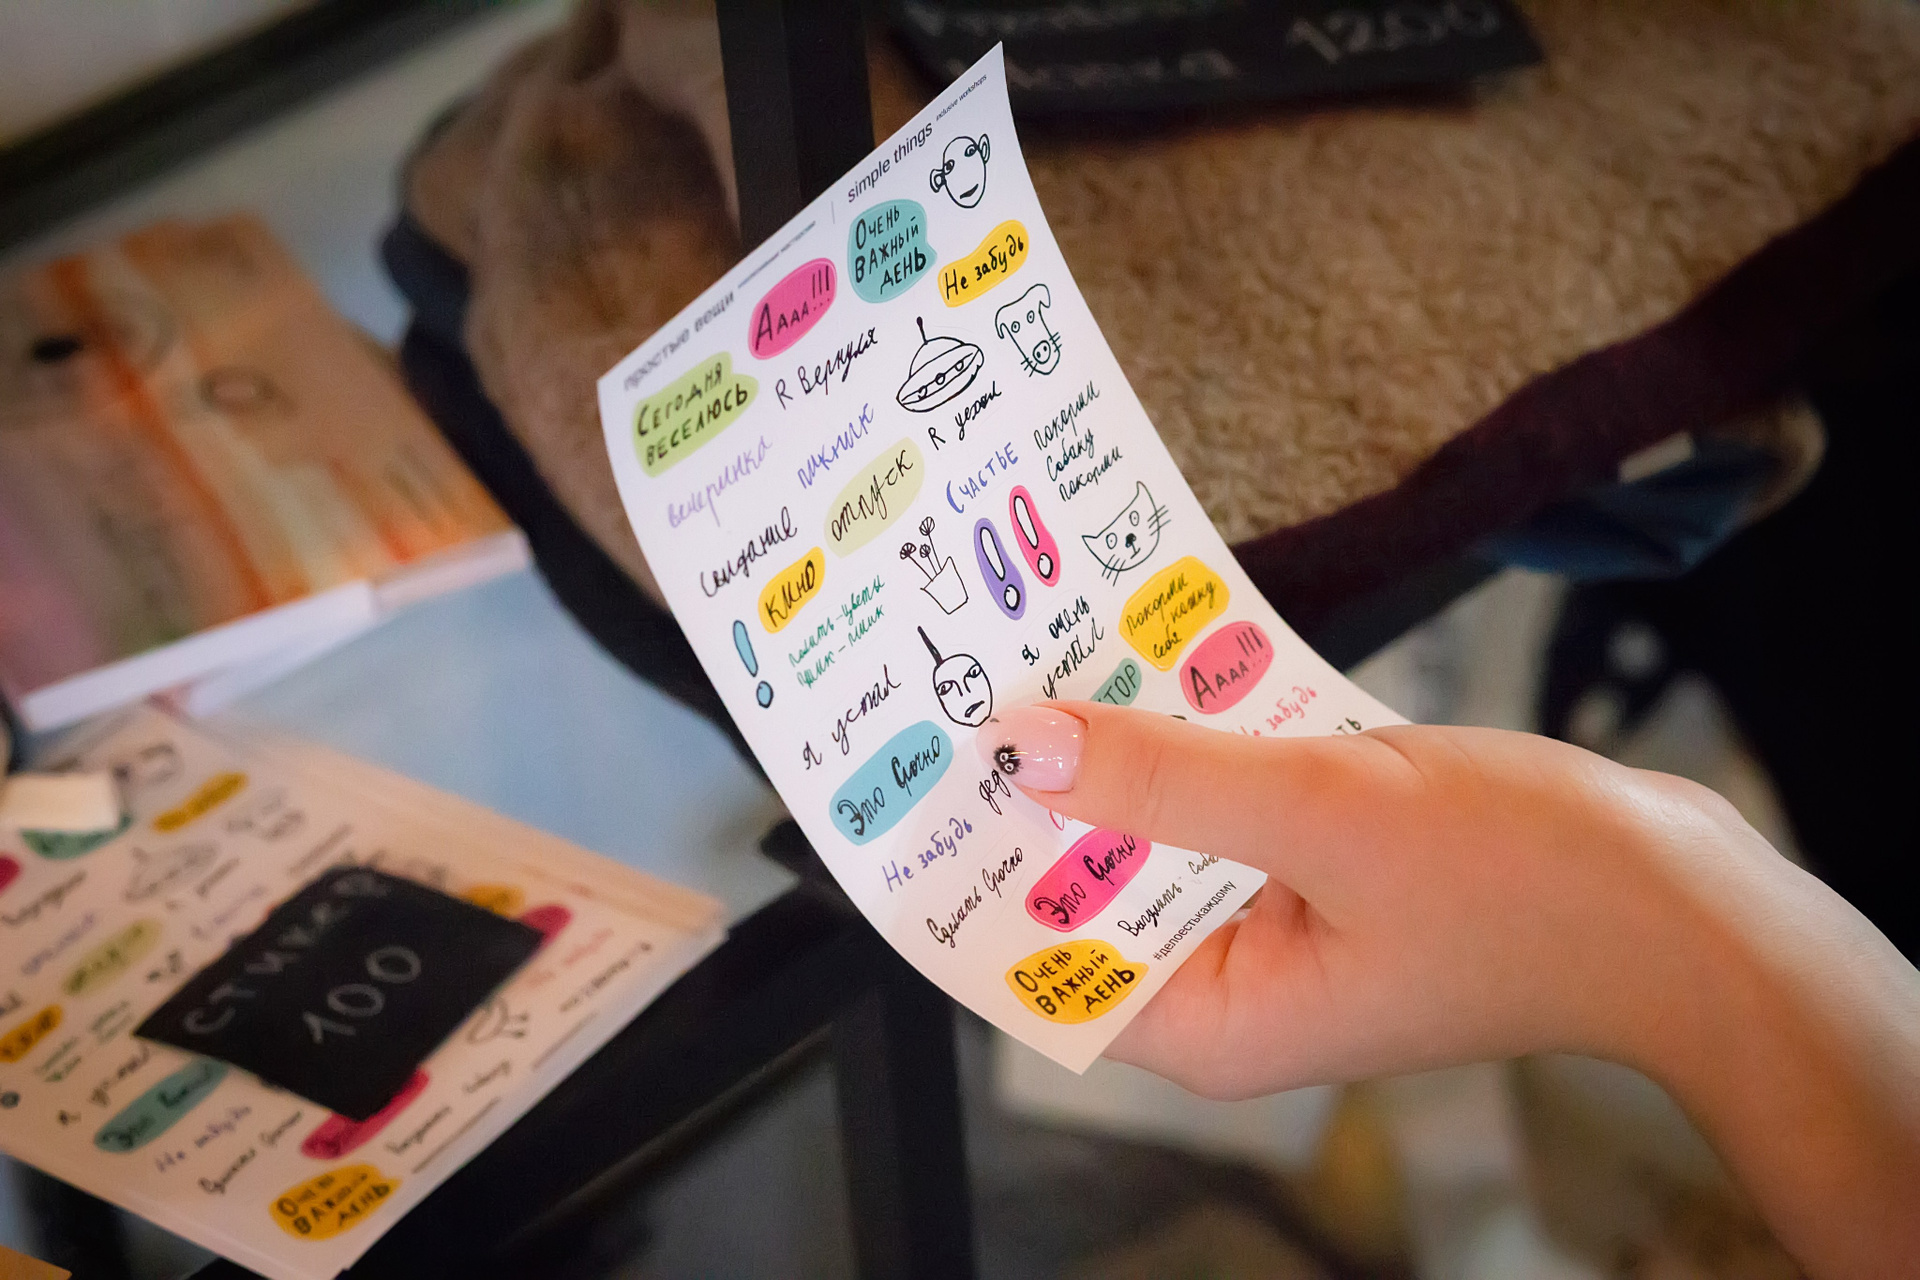 простые вещи
simple things inclusive workshops
Сегодня
веселюсь
Аааа!!!
Очень
важный
день
Не забудь
Я вернулся
Я уехал
вечеринка
пикник
Счастье
покорми
собаку
покорми
свидание
отпуск
кино
полить-цветы
пшик-пшик
я очень
устал
покорми
себя кошку
я устал
ТОР
Аааа!!!
Не забудь
Это срочно
Не забудь
Сделать срочно
Это срочно
Выгулять соба
#делоестькаждому
Очень
важный
день
стикер
100
Очень
важный
день
1200